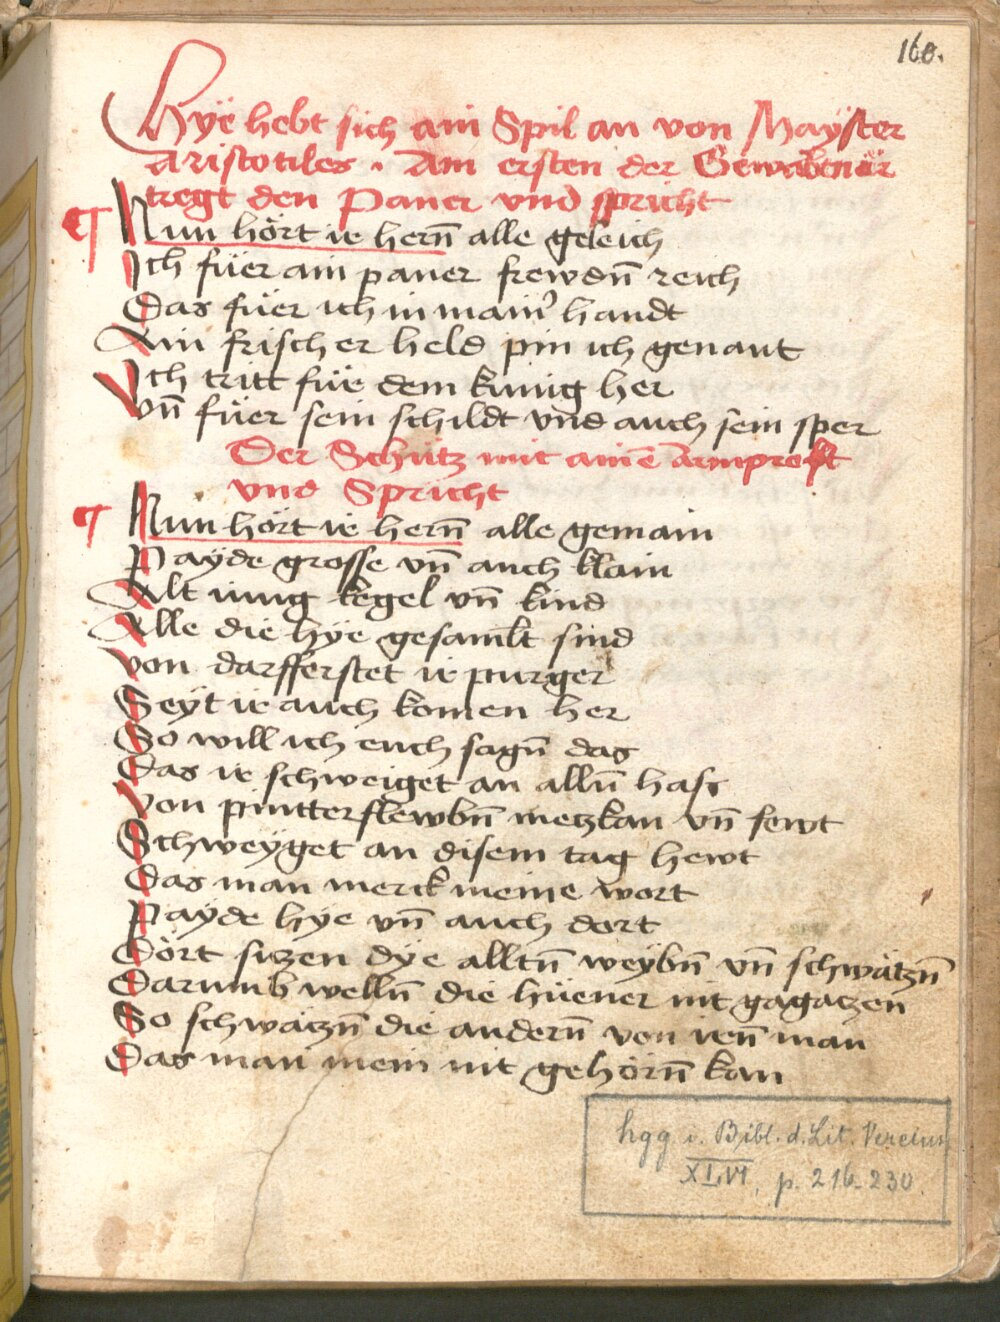 160.
Hye hebt sich ain Spil an von Mayster
Aristotiles . Am ersten der Gewabtnär
tregt den Paner vnd spricht
¶ Nun hört ir hern̄ alle geleich
Ich füer ain paner frewdn̄ reich
Das füer ich in mainˀ handt
Ain frischer held pin ich genant
Ich tritt für dem kunig her
Vn̄ füer sein schildt vnd auch sein sper
Der Schütz mit ainē armprost
vnd Spricht
¶ Nun hört ir hern̄ alle gemain
Payde grosse vn̄ auch klain
Alt iung kegel vn̄ kind
Alle die hye gesamlt sind
von ir purger
Seyt ir auch komen her
So will ich euch sagn̄ das
Das ir schweiget an alln̄ hass
Von vn̄
Schweyget an disem tag hewt
Das man merck meine wort
Payde hye vn̄ auch dort
Dört sizen dye alltn̄ weybn̄ vn̄ schwätzn̄
Darumb welln̄ die hüener nit gagatzen
So schwätzn̄ die andern̄ von irn̄ man
Das man mein nit gehörn̄ kan
hgg i. Bibl. d. Lit. Vereins
XLVI, p. 216-230.